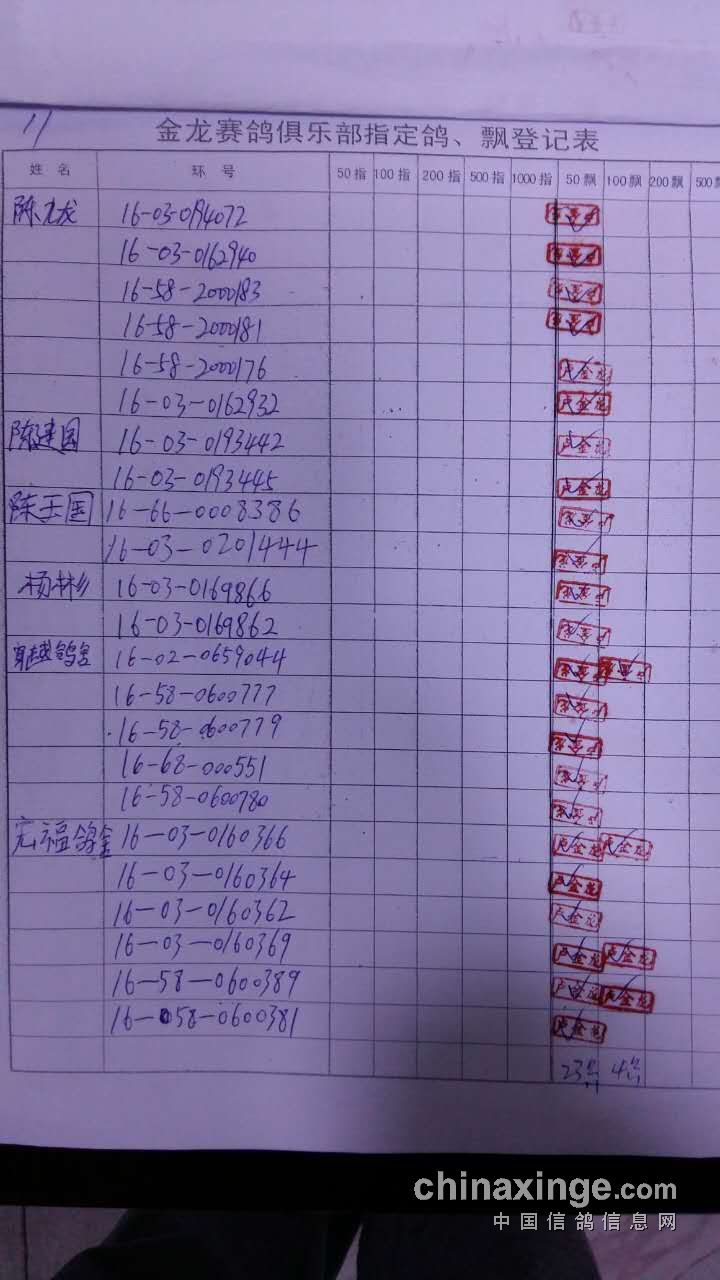 11
金龙赛鸽俱乐部指定鸽、飘登记表
姓名 环号 50指 100指 200指 500指 1000指 50飘 100飘 200飘 500飘
陈 龙 16-03-0194072
16-03-0162940
16-58-2000183
16-58-2000181
16-58-2000176 卢金龙
16-03-0162932 卢金龙
陈建国 16-03-0193442 卢金龙
16-03-0193445 卢金龙
陈玉国 16-66-0008386
16-03-0201444
杨彬 16-03-0169866
16-03-0169862
穿越鸽舍 16-02-0659044
16-58-0600777
16-58-0600779
16-68-000551
16-58-0600780
宏福鸽舍 16-03-0160366 卢金龙 卢金龙
16-03-0160364 卢金龙
16-03-0160362 卢金龙
16-03-0160369 卢金龙 卢金龙
16-58-0600389 卢金龙 卢金龙
16-058-0600381 卢金龙
23 4
chinaxinge.com
中国信鸽信息网